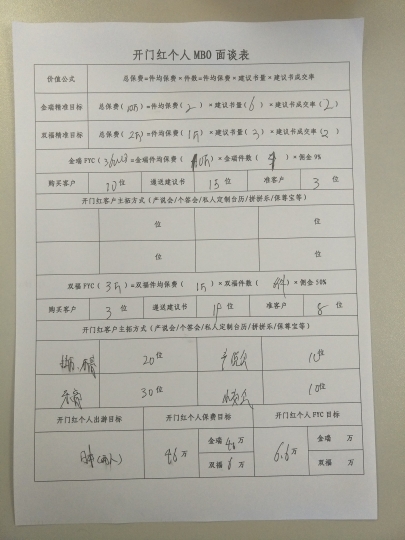 开门红个人 MBO 面谈表
价值公式 总保费=件均保费×件数=件均保费×建议书量×建议书成交率
金瑞精准目标 总保费( )=件均保费( 2 )×建议书量( 6 )×建议书成交率( 2 )
双福精准目标 总保费( 2万 )=件均保费( 1万 )×建议书量( 3 )×建议书成交率( 2 )
金瑞 FYC( )=金瑞件均保费( )×金瑞件数( )×佣金 9%
购买客户 10 位 递送建议书 15 位 准客户 3 位
开门红客户主拓方式(产说会/个答会/私人定制台历/拼拼乐/保尊宝等)
位 位
位 位
双福 FYC( 3万 )=双福件均保费( 1万 )×双福件数( )×佣金 50%
购买客户 3 位 递送建议书 位 准客户 8 位
开门红客户主拓方式(产说会/个答会/私人定制台历/拼拼乐/保尊宝等)
20 位 产说会 10 位
30 位 10 位
开门红个人出游目标 开门红个人保费目标 开门红个人 FYC 目标
46 万 金瑞 40 万 6.6 万 金瑞 万
双福 6 万 双福 万